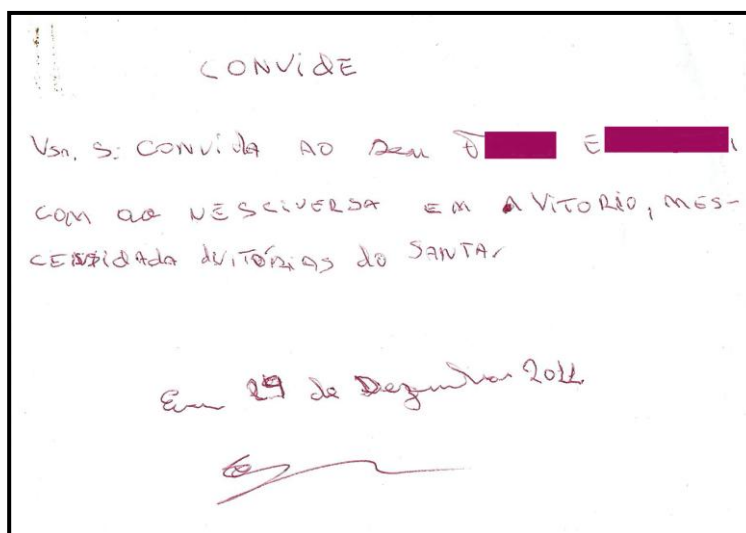 CONVIDE
Vsn. S: CONVida AO Dem E
com ao NESCIVERSA EM A VITORIO, MES-
CENSidAda dVITÓRIAS do SANTA,
Em 29 de Dezembro 2011.